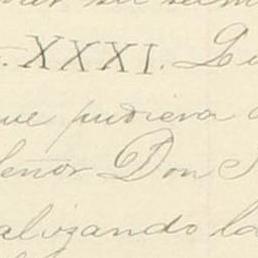 XXXI.
que pudiera
Señor Don
alizando la